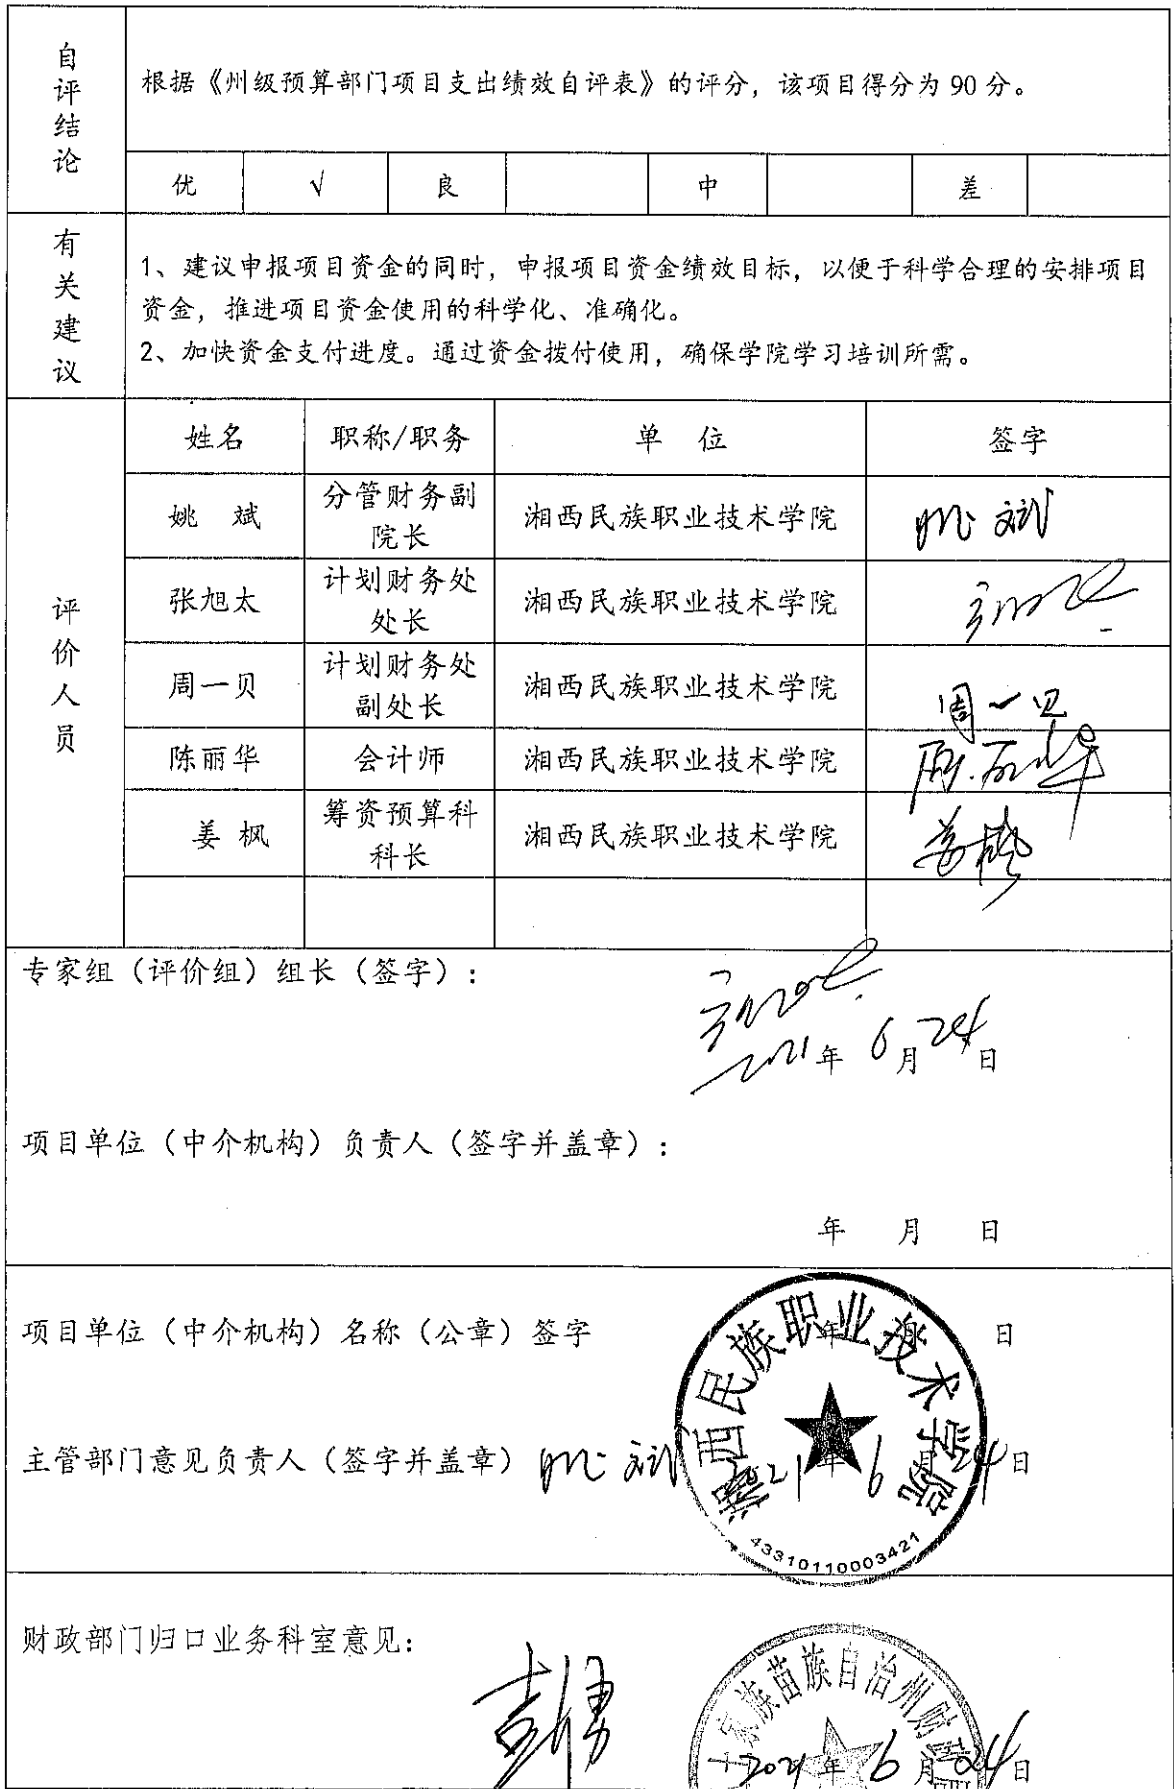 自评结论
根据《州级预算部门项目支出绩效自评表》的评分，该项目得分为 90 分。
优 √ 良 中 差
有关建议
1、建议申报项目资金的同时，申报项目资金绩效目标，以便于科学合理的安排项目
资金，推进项目资金使用的科学化、准确化。
2、加快资金支付进度。通过资金拨付使用，确保学院学习培训所需。
评价人员
姓名 职称/职务 单 位 签字
姚 斌 分管财务副
院长 湘西民族职业技术学院 姚斌
张旭太 计划财务处
处长 湘西民族职业技术学院
周一贝 计划财务处
副处长 湘西民族职业技术学院 周一贝
陈丽华 会计师 湘西民族职业技术学院 陈丽华
姜 枫 筹资预算科
科长 湘西民族职业技术学院 姜枫
专家组（评价组）组长（签字）：
2021年 6月24日
项目单位（中介机构）负责人（签字并盖章）：
年 月 日
项目单位（中介机构）名称（公章）签字 年 日
湘西民族职业技术学院
主管部门意见负责人（签字并盖章） 姚斌 21年 6月24日
43310110003421
财政部门归口业务科室意见：
土家族苗族自治州财政
2021年 6月24日